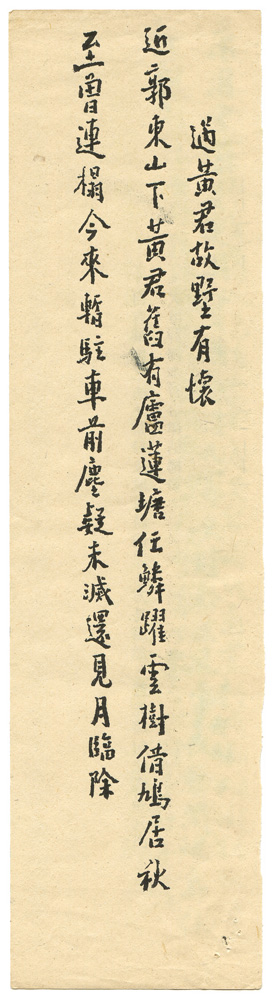 過黃君故墅有懷
近郭東山下黃君舊有廬蓮塘任鱗躍雲樹借鳩居秋
至曾連榻今來暫駐車前塵疑未滅還見月臨除